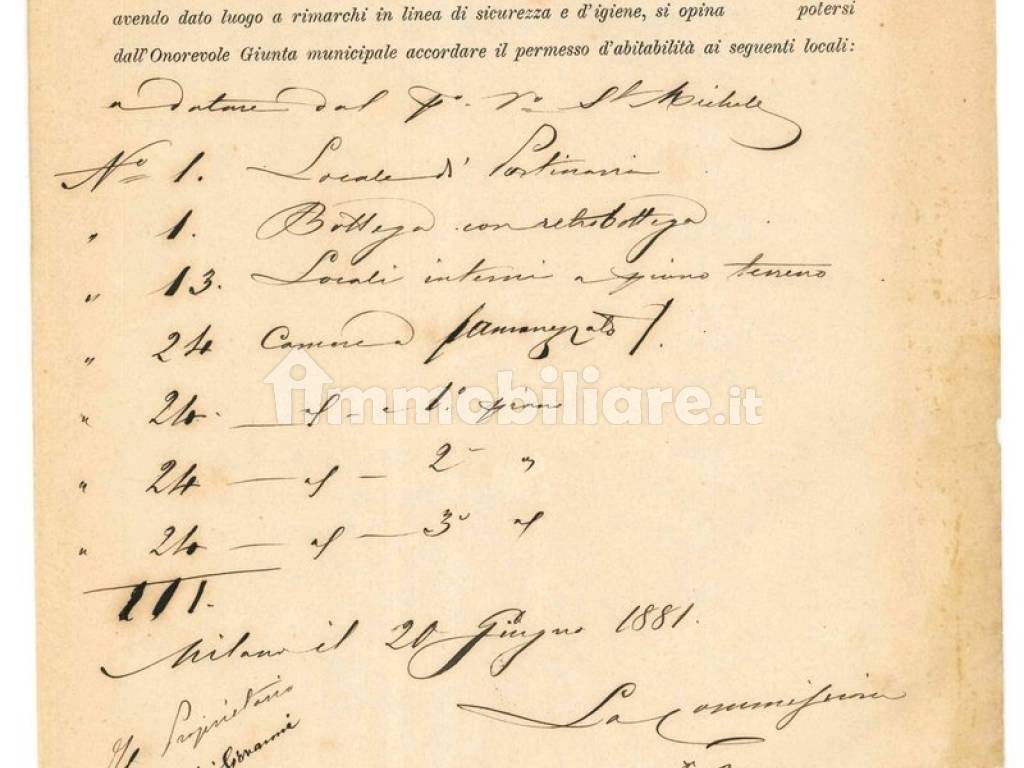 avendo dato luogo a rimarchi in linea di sicurezza e d'igiene, si opina potersi
dall'Onorevole Giunta municipale accordare il permesso d'abitabilità ai seguenti locali:
a datare dal po. vo. St Michele
No 1. Locale di Portineria
" 1. Bottega con retrobottega
" 13. Locali interni a piano terreno
" 24 Camere a (ammezzato).
immobiliare.it
" 24. — " — a 1o piano
" 24 — " — 2o "
" 24 — " — 3o "
111.
Milano il 20 Giugno 1881.
La Commissione
Il Proprietario
Giovanni